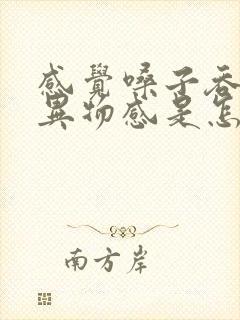 感覺嗓子吞
異物感是怎
南方岸